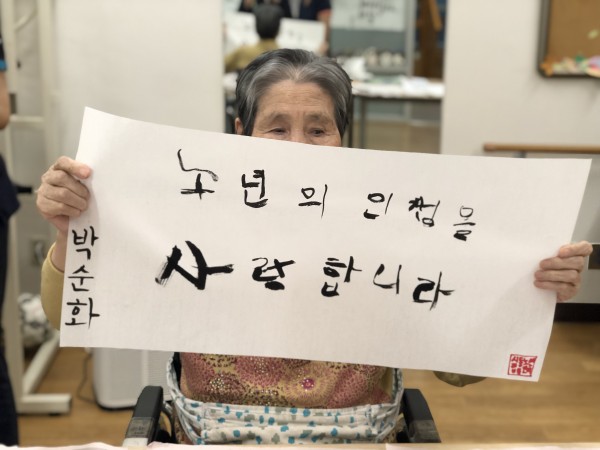 노년의 인생을
사랑합니라
박순화